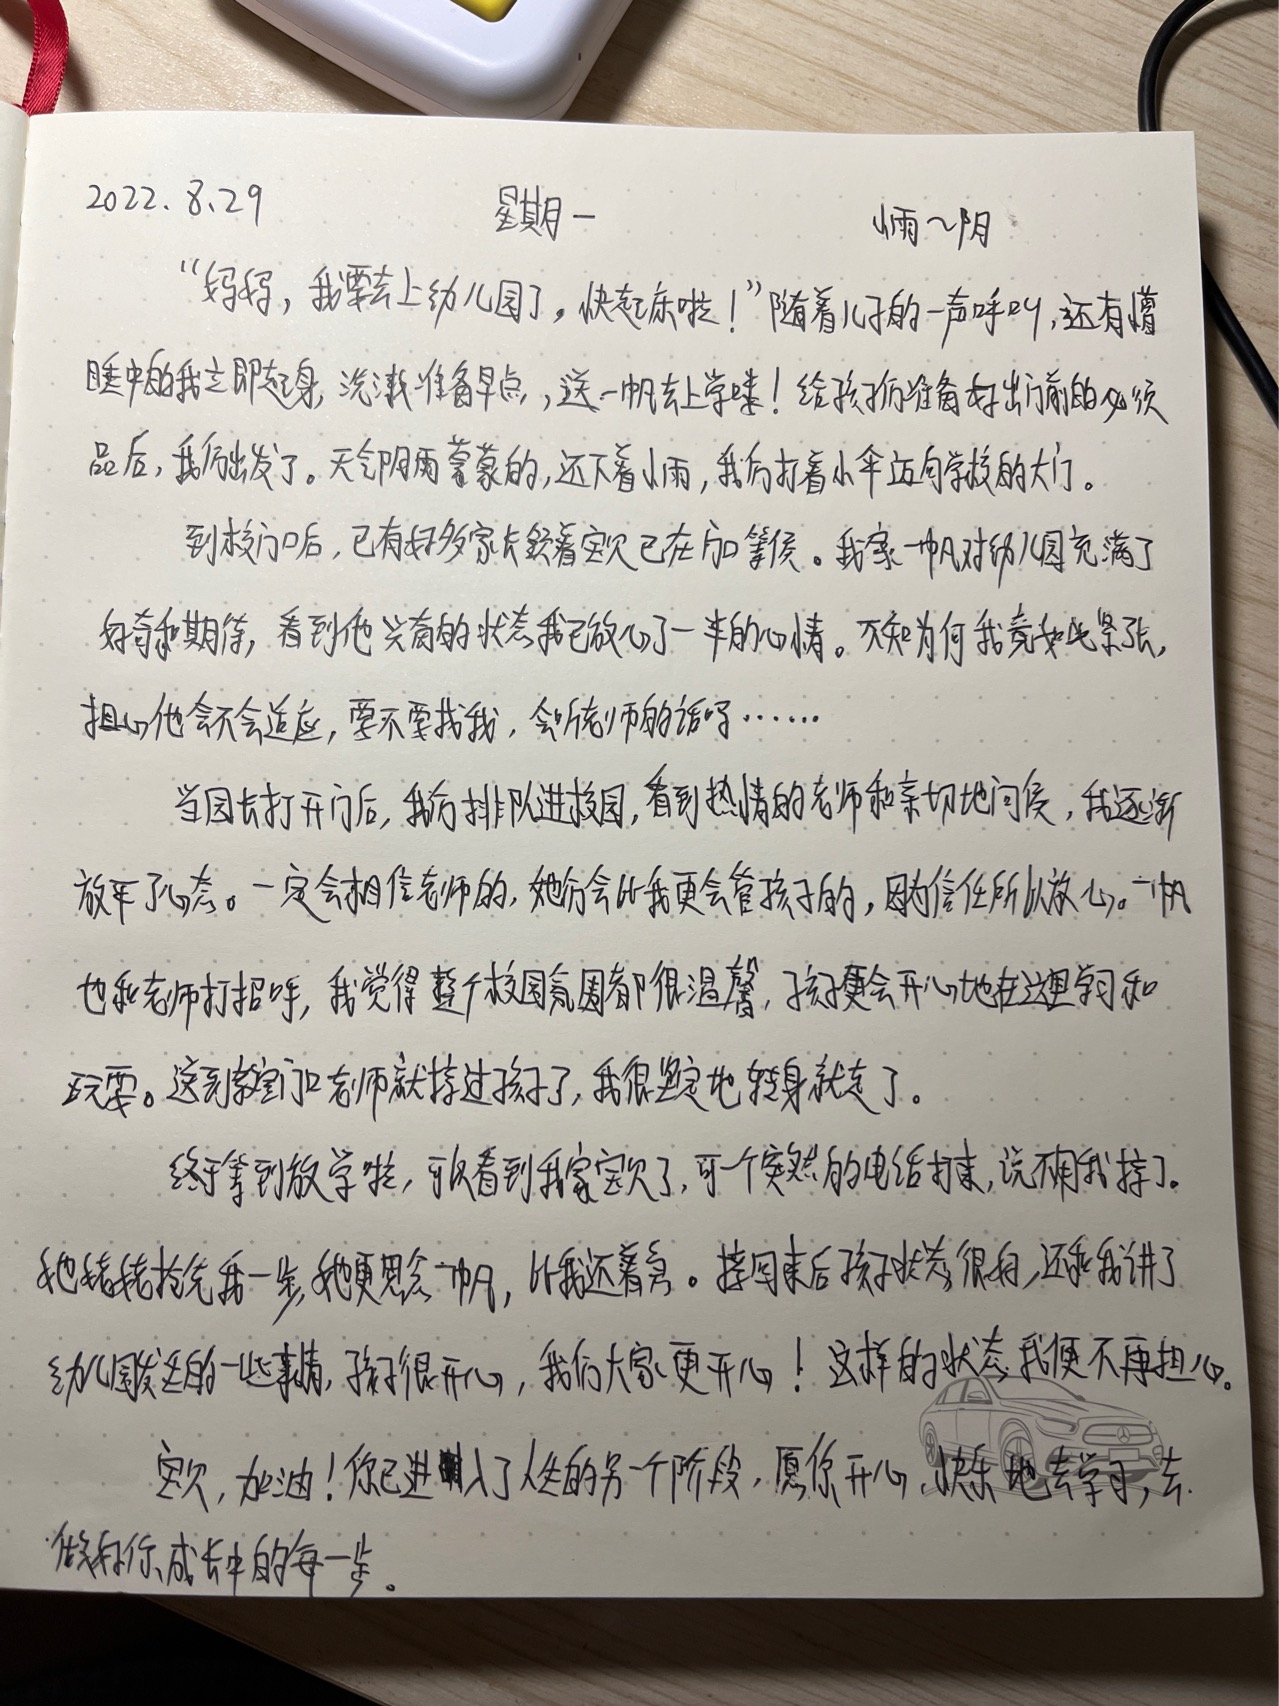 2022.8.29 星期一 小雨~阴
“妈妈，我要去上幼儿园了，快起床啦！”随着儿子的一声呼叫，还有懵
睡中的我立即起身，洗漱准备早点，送一帆去上学喽！给孩子们准备好出门前的必须
品后，我们出发了。天气阴雨蒙蒙的，还下着小雨，我们打着小伞迈向学校的大门。
到校门口后，已有好多家长领着宝贝已在门口等侯。我家一帆对幼儿园充满了
好奇和期待，看到他兴奋的状态我已放心了一半的心情。不知为何我竟如此紧张，
担心他会不会适应，要不要找我，会听老师的话吗……
当园长打开门后，我们排队进校园，看到热情的老师和亲切地问侯，我逐渐
放平了心态。一定会相信老师的，她们会比我更会管孩子的，因为信任所以放心。一帆
也和老师打招呼，我觉得整个校园氛围都很温馨，孩子便会开心地在这里学习和
玩耍。送到教室门口老师就接过孩子了，我很坚定地转身就走了。
终于等到放学啦，可以看到我家宝贝了，可一个突然的电话打来，说不用我接了。
她姥姥抢先我一步，她更思念一帆，比我还着急。接回来后孩子状态很好，还和我讲了
幼儿园发生的一些事情，孩子很开心，我们大家更开心！这样的状态我便不再担心。
宝贝，加油！你已进入了人生的另一个阶段，愿你开心、快乐地去学习，去
做好你成长中的每一步。